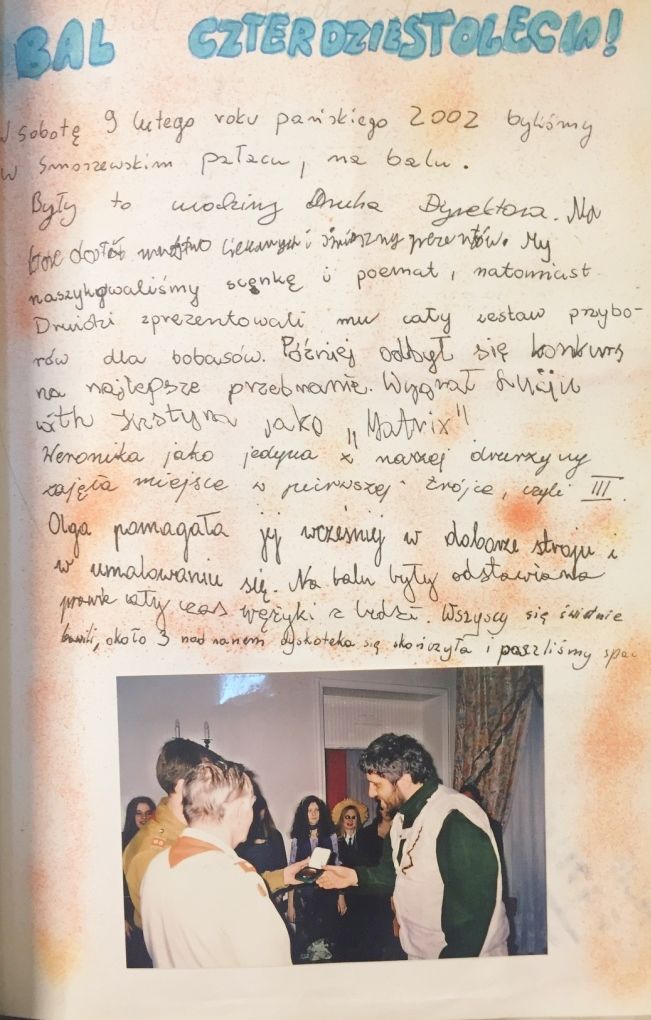 BAL CZTERDZIESTOLECIA!
W sobotę 9 lutego roku pańskiego 2002 byliśmy
w Smoszewskim pałacu, na balu.
Były to urodziny Druha Dyrektora. Na
bal dostał mnóstwo ciekawych i śmiesznych prezentów. My
naszykowaliśmy scenkę i poemat, natomiast
Druidzi zprezentowali mu cały zestaw przybo-
rów dla bobasów. Później odbył się konkurs
na najlepsze przebranie. Wygrał
with Krstyna jako „Matrix"
Weronika jako jedyna z naszej drużyny
zajęła miejsce w pierwszej trójce, czyli III.
Olga pomagała jej wcześniej w doborze stroju i
w umalowaniu się. Na balu były odstawiane
prawie cały czas wężyki z ludzi. Wszyscy się świetnie
bawili, około 3 nad ranem dyskoteka się skończyła i poszliśmy spać